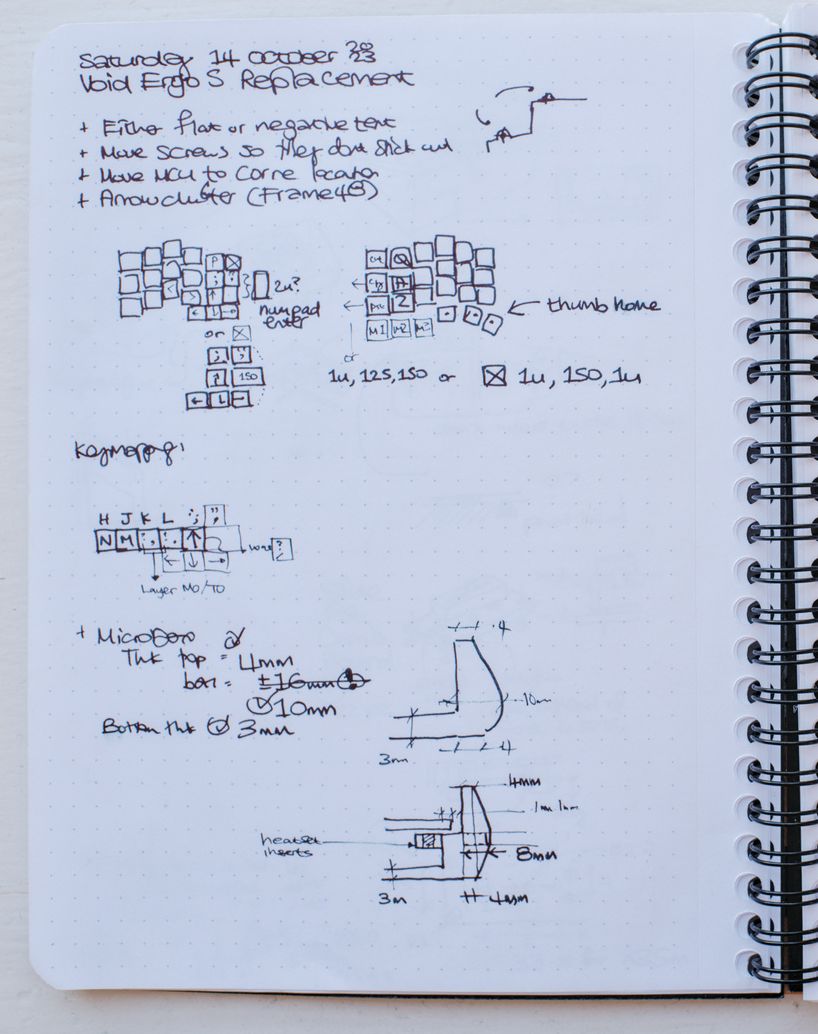 Saturday 14 October 2023
Void Ergo S Replacement
+ Either flat or negative tent
+ Move screws so they dont stick out
+ Move MCU to Corne location
+ Arrow cluster (Frame48)
P
2u?
numpad
enter
or
150
Q
A
Z
M1 M2 M3
thumb home
or
1u, 125, 150 or 1u, 150, 1u
Keymapping:
H J K L ; "
N M
Layer MO/TO
+ Microdox
Thk top = 4mm
bott = ±16mm
10mm
Bottom thk 3mm
4
10m
3mm
4
4mm
1m 1m
heatset
inserts
8mm
3m
4mm